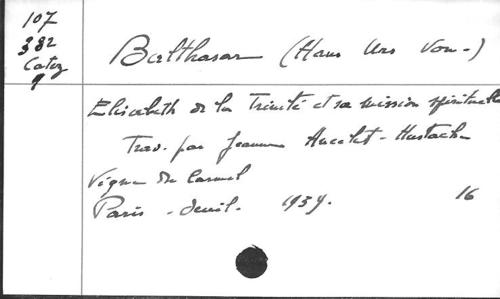 107
382
Catez
9
Balthasar (Hans Urs Von-)
Elisabeth de la Trinité et sa mission spirituelle
Trad. par Jeanne Ancelet-Hustache
Vigne du Carmel
Paris - Seuil. 1959. 16